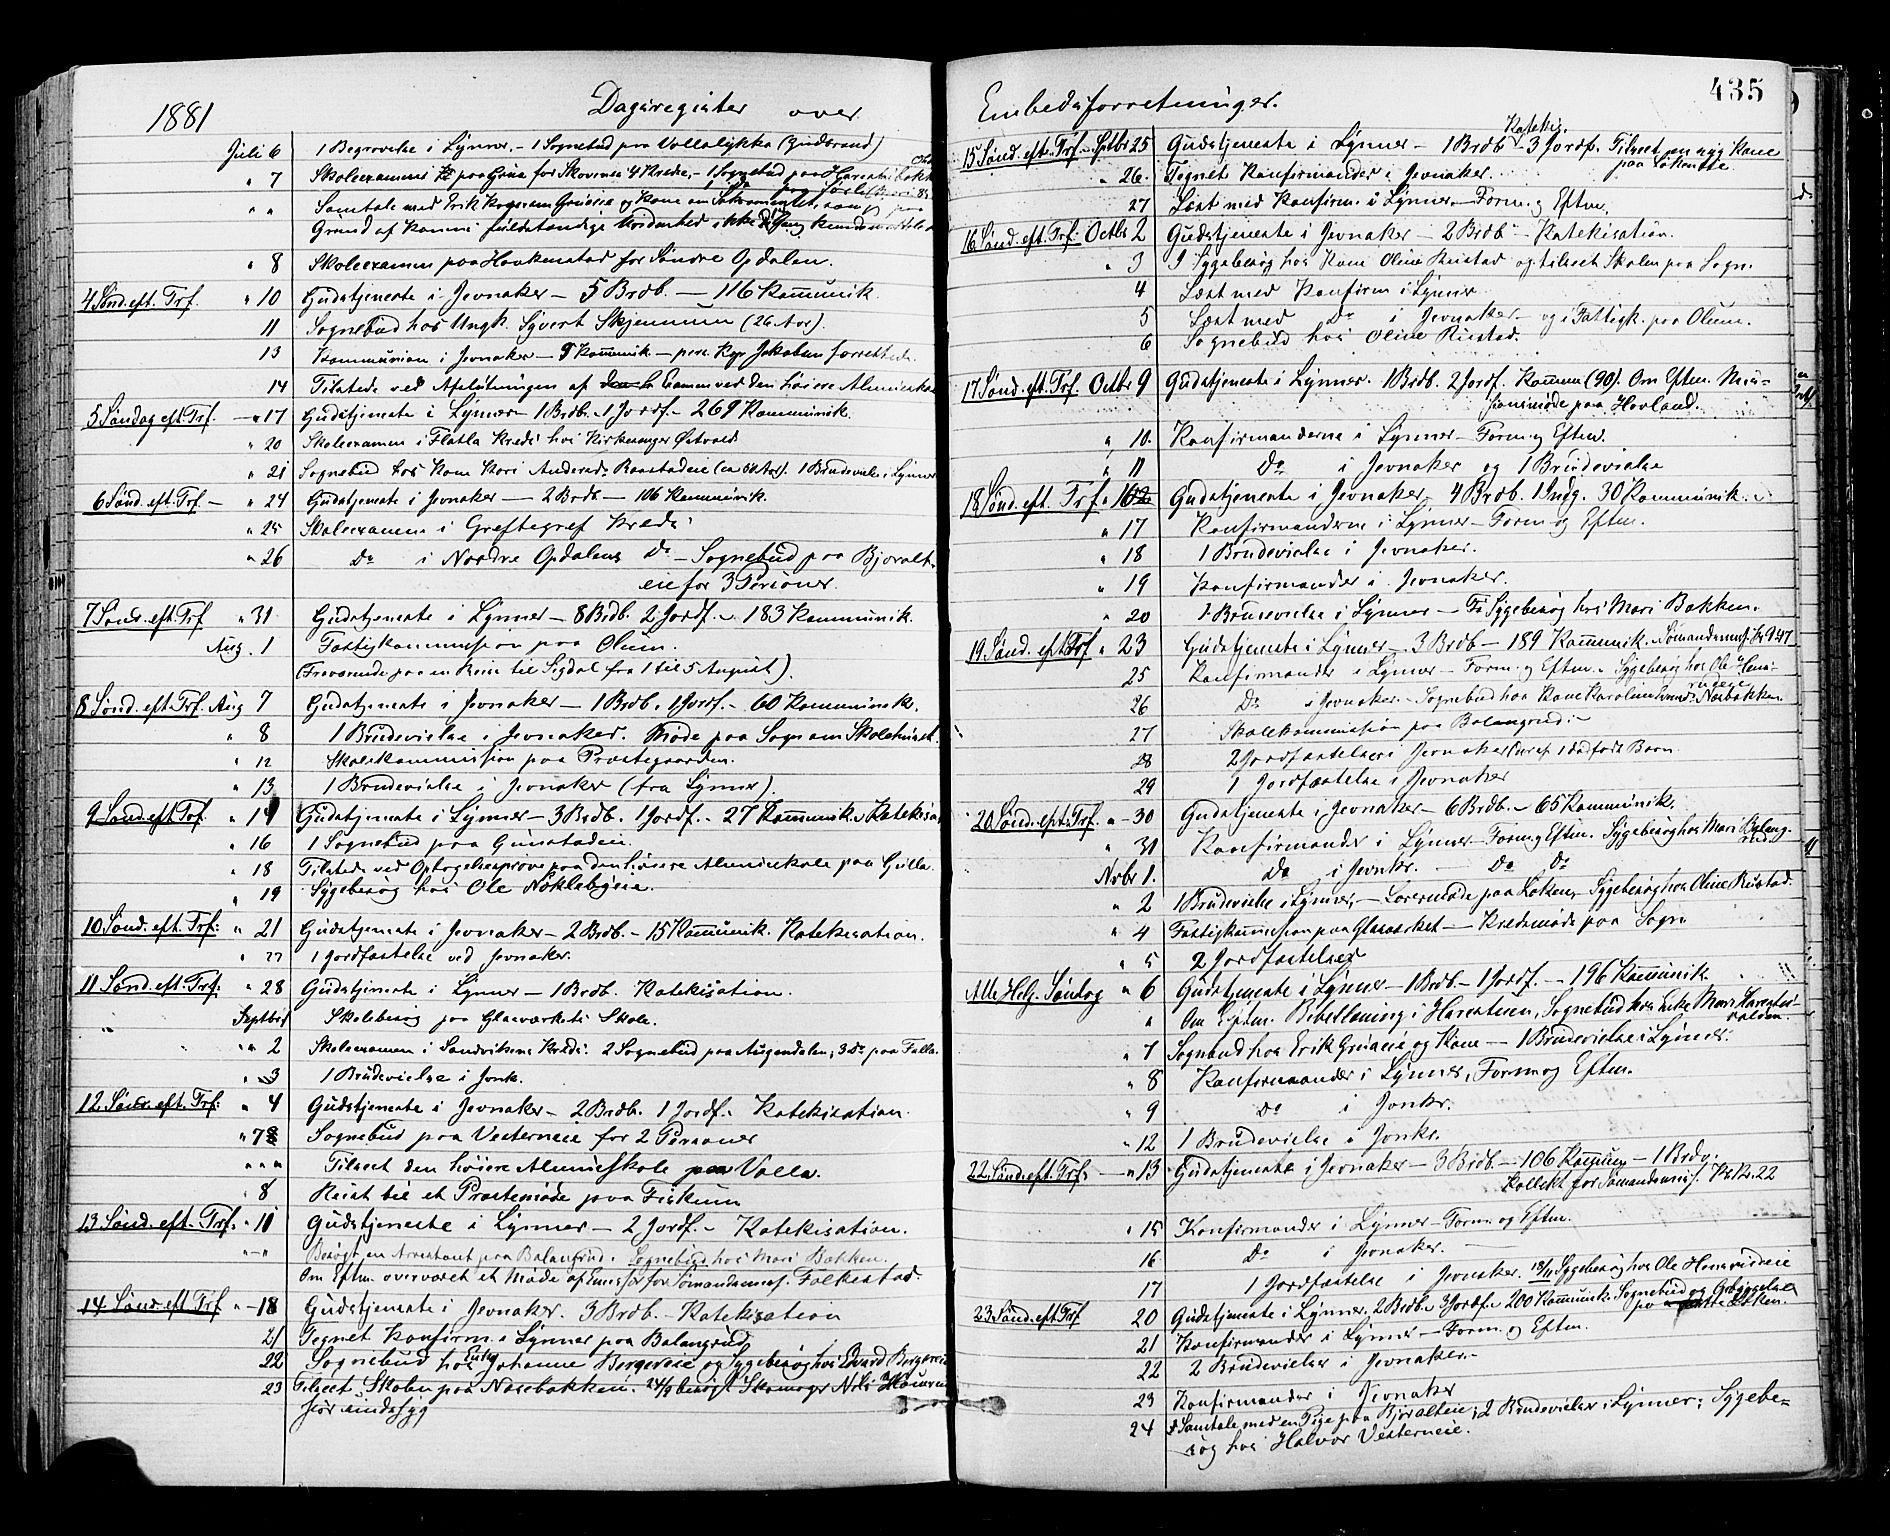 1881 Dagsregister over
Juli 6 1 Begravelse i Lynner. - 1 Sognebud paa Vollalykka (Gudbrand)
" 7 Skoleexamen paa Grua for Skovens 4 Kreds, - 1 Sognebud paa
" " Samtale med Erik Grueeie og Kone om Sakramentet, som paa
Grund af Konens fuldstændige ikke
" 8 Skoleexamen paa Haakenstad for Søndre Opdalen.
4 Sønd. eft. Trf. " 10 Gudstjeneste i Jevnaker - 5 Brdb. - 116 Kommunik.
11 Sognebud hos Ungk. Syvert Skjennum (26 Aar).
13 Kommunion i Jevnaker - 9 Kommunik. - pers. Kap. Jakobsen forrettede.
14 Tilstede ved Afslutningen af Examen ved den høiere Almueskole
5 Søndag eft. Trf. - " 17 Gudstjeneste i Lynner - 1 Brdb. - 1 Jordf. - 269 Kommunik.
" 20 Skoleexamen i Flatla Kreds hos Kirkesanger Østvold
" 21 Sognebud hos Kone Kari Andersd. Raastadeie 1 Brudevielse i Lynner
6 Sønd. eft. Trf. - " 24 Gudstjeneste i Jevnaker - 2 Brdb - 106 Kommunik.
" 25 Skoleexamen i Greftegref Kreds
" 26 Do i Nordre Opdalens Do - Sognebud paa Bjoralt-
eie for 3 Personer.
7 Sønd. eft. Trf " 31 Gudstjeneste i Lynner - 8 Brdb. 2 Jordf. - 183 Kommunik.
Aug. 1 Fattigkommission paa Olum.
(Fraværende paa en Reise til Sigdal fra 1 til 5 August).
8 Sønd. eft. Trf. Aug 7 Gudstjeneste i Jevnaker - 1 Brdb. 1 Jordf. - 60 Kommunik.
" 8 1 Brudevielse i Jevnaker. Møde paa Sogn om Skolehuset.
" 12 Skolekommission paa Præstegaarden.
" 13 1 Brudevielse i Jevnaker (fra Lynner).
9 Sønd. eft. Trf. " 14 Gudstjeneste i Lynner - 3 Brdb. 1 Jordf. - 27 Kommunik. Katekisa
" 16 1 Sognebud paa Gunstadeie.
" 18 Tilstede ved Optagelsesprøve paa den høiere Almueskole paa Gvilla.
" 19 Sygebesøg hos Ole Nøklebyeie.
10 Sønd. eft. Trf: " 21 Gudstjeneste i Jevnaker - 2 Brdb. - 15 Kommunik. Katekisation.
" 1 Jordfæstelse ved Jevnaker.
11 Sønd. eft. Trf. " 28 Gudstjeneste i Lynner - 1 Brdb. Katekisation.
Septbr 1 Skolebesøg paa Glasværkets Skole.
" " 2 Skoleexamen i Sandvikens Kreds. 2 Sognebud paa Augendalen, 3 Do paa Falla.
" 3 1 Brudevielse i Jvnk.
12 Sønd. eft. Trf: " 4 Gudstjeneste i Jevnaker - 2 Brdb. 1 Jordf. - Katekisation.
" 7 Sognebud paa Vesterneie for 2 Personer
" " " Tilseet den høiere Almueskole paa Volla.
" 8 Reist til et Præstemøde paa Fiskum
13 Sønd. eft. Trf. " 11 Gudstjeneste i Lynner - 2 Jordf. - Katekisation.
" - " Besøgt en Arrestant paa Balangrud. Sognebud hos Mari Bakken.
Om Eftm overværet et Møde af for Sømandsmis. Falkestad.
14 Sønd. eft. Trf " - 18 Gudstjeneste i Jevnaker. 3 Brdb. - Katekisation
21 Tegnet Konfirm. i Lynner paa Balangrud
22 Sognebud hos Enke Johanne Bergereie og Sygebesøg hos Edvard Bergereie
23 Tilseet Skolen paa Næsebakken. 24/9 besøgt Skomager Nils
før sindssyg
Embedsforretninger. 435
15 Sønd. eft. Trf - Sptbr 25 Gudstjeneste i Lynner - 1 Brdb - 3 Jordf. Katekis. Tilseet en syg Kone
paa Løkenette.
" 26. Tegnet Konfirmander i Jevnaker.
27 Læst med Konfirm. i Lynner - Form. og Eftm.
16 Sønd. eft. Trf: Octbr 2 Gudstjeneste i Jevnaker - 2 Brdb - Katekisation.
" 3 I Sygebesøg hos Kone Oline Rustad og tilseet Skolen paa Sogn.
4 Læst med Konfirm i Lynner
5 Læst med Do i Jevnaker - og i Fattigk. paa Olum.
6 Sognebud hos Oline Rustad.
17 Sønd. eft. Trf. Octbr 9 Gudstjeneste i Lynner. 1 Brdb. 2 Jordf. Komm (90). Om Eftm. Mis-
sionsmøde paa Hovland.
" 10. Konfirmanderne i Lynner - Form. og Eftm.
" 11 Do i Jevnaker og 1 Brudevielse
18 Sønd. eft. Trf. " 16 Gudstjeneste i Jevnaker - 4 Brdb. 1 Indg. 30 Kommunik. -
" 17 Konfirmanderne i Lynner - Form. og Eftm.
" 18 1 Brudevielse i Jevnaker.
" 19 Konfirmander i Jevnaker.
" 20 1 Brudevielse i Lynner - Sygebesøg hos Mari Bakken.
19 Sønd. eft. Trf " 23 Gudstjeneste i Lynner - 3 Brdb - 189 Kommunik. - Sømandsmis. Kr 9.47
25 Konfirmander i Lynner - Form. og Eftm. Sygebesøg hos Ole Hens-
rudeie
26 Do i Jevnaker. - Sognebud hos Kone Karoline Næsbakken
27 Skolekommission paa Balangrud. -
28 2 Jordfæstelser i Jevnaker (deraf 1 dødfødt Barn
29 1 Jordfæstelse i Jevnaker
20 Sønd. eft. Trf. " - 30 Gudstjeneste i Jevnaker - 6 Brdb. - 65 Kommunik.
" 31 Konfirmander i Lynner - Form. og Eftm. Sygebesøg hos Mari Balang-
rud
Nvbr 1. Do i Jevnkr. - Do Do
" 2 1 Brudevielse i Lynner, - Lærermøde paa Løken, Sygebesøg hos Oline Rustad.
" 4 Fattigkommission paa Glasværket - Kredsmøde paa Sogn
" 5 2 Jordfæstelser
Alle Helg. Søndag " 6 Gudstjeneste i Lynner - 1 Brdb. - 1 Jordf. - 196 Kommunik.
" Om Eftm. Bibellæsning i Harestuen, Sognebud hos Enke Mari
" 7 Sognebud hos Erik Grueeie og Kone - 1 Brudevielse i Lynner.
" 8 Konfirmander i Lynner, Form og Eftm.
" 9 Do i Jvnkr.
" 12 1 Brudevielse i Jvnkr.
22 Sønd. eft. Trf. - " 13 Gudstjeneste i Jevnaker - 3 Brdb - 106 Kommun - 1 Brdv.
Kollekt for Sømandsmis. Kr. 12.22
" 15 Konfirmander i Lynner - Form. og Eftm.
16 Do i Jevnaker. -
17 1 Jordfæstelse i Jevnaker. 18/11 Sygebesøg hos Ole Hensrudeie
23 Sønd. eft. Trf 20 Gudstjeneste i Lynner. 2 Brdb. - 3 Jordf. - 200 Kommunik. Sognebud
paa Løken.
21 Konfirmander i Lynner - Form. og Eftm.
22 2 Brudevielser i Jevnaker. -
23 Konfirmander i Jevnaker
24 Samtale med en Pige paa Bjoralteie; 2 Brudevielser i Lynner; Sygebe-
søg hos Halvor Vesterneie.